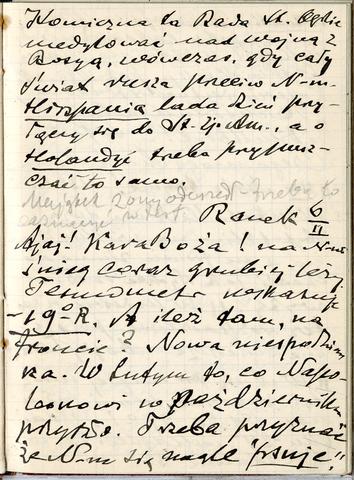 Komiczna ta Rada St.
medytować nad wojną z
Rosyą, wówczas, gdy cały
świat rusza przeciw Nm.
Hiszpania lada dzień przy-
łączy się do St. Zj. Am., a o
Holandyi trzeba przypusz-
czać to samo.
trzeba to
Ranek 6/II
Ajaj! Kara Boża! na
śnieg coraz grubszy leży
Termometr wskazuje
-19°R. A ileż tam, na
froncie? Nowa niespodzian
ka. W lutym to, co Napo-
leonowi w październiku
Trzeba przyznać
że Nm się nagle